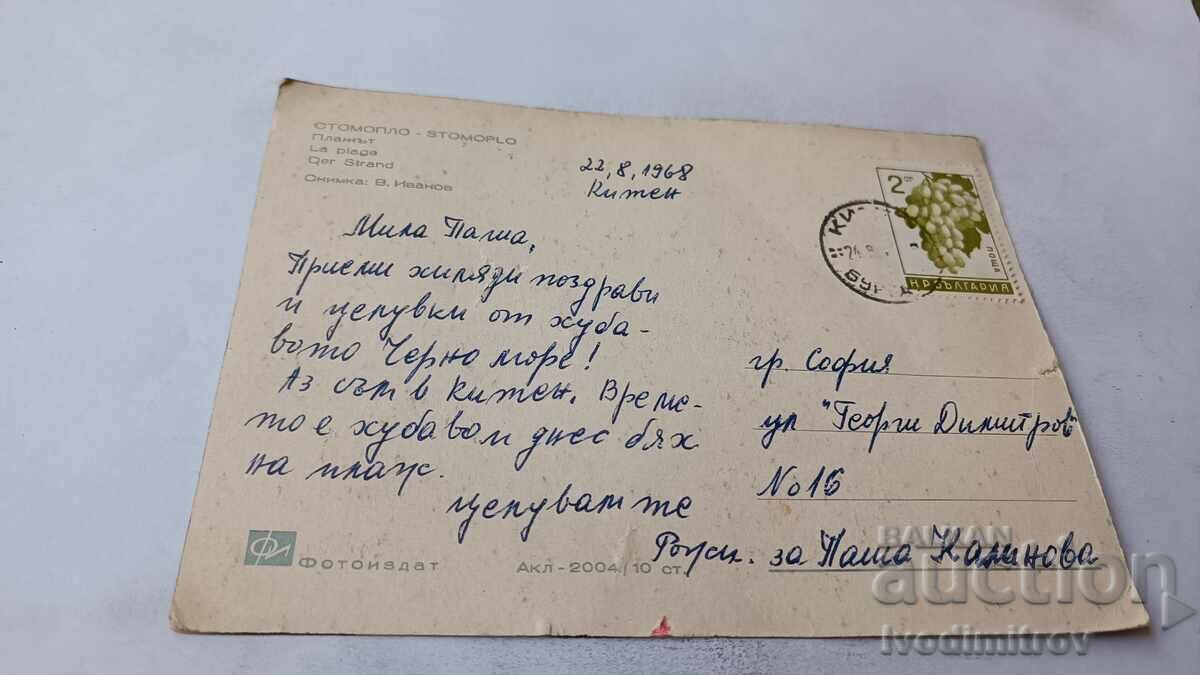 СТОМОПЛО - STOMOPLO
Плажът
La plage
Der Strand
Снимка: В. Иванов
22.8.1968
Китен
Мила Паша,
Приеми хиляди поздрави
и целувки от хуба-
вото Черно море!
Аз съм в Китен. Време-
то е хубаво и днес бях
на плаж.
целувам те
2 ст
ПОЩА
НР БЪЛГАРИЯ
КИ
24.8.
БУР
гр. София
ул "Георги Димитров"
No 16
за Паша Калинова
Фотоиздат
Акл-2004/10 ст.
BALKAN
auction
Ivodimitrov